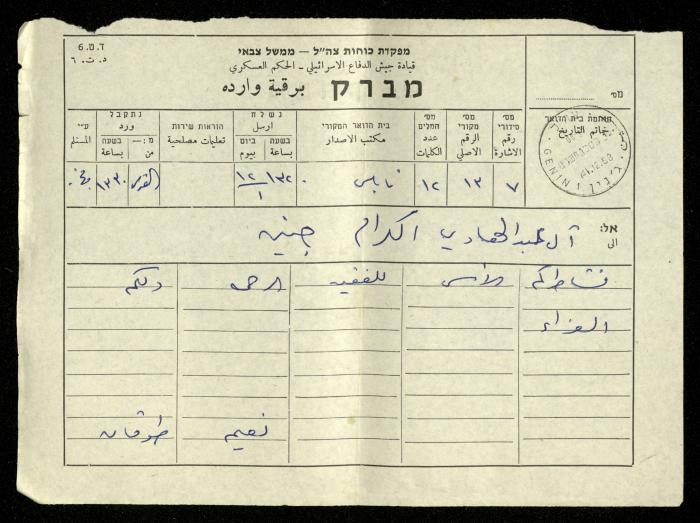 ד.ט.6
د.ت.٦
מפקדת כוחות צה"ל — ממשל צבאי
قيادة جيش الدفاع الاسرائيلي - الحكم العسكري
מברק برقية وارده
מס'
חותמת בית הדואר
خاتم التاريخ
GENIN
מס' סידורי
رقم الاشارة
מס' מקורי
الرقم الاصلي
מס' המלים
عدد الكلمات
בית הדואר המקורי
مكتب الاصدار
נשלח
ارسل
בשעה ביום
بساعة بيوم
הוראות שירות
تعليمات مصلحية
נתקבל
ورد
מ: — בשעה
من بساعة
ע"י
المستلم
٧ ١٣ ١٢ نابلس ١٣٢٠ ١٢/١ القدس ١٣٣٠
אל:
الى
آل عبد الهادي الكرام جنين
نشاطركم الأسى للفقيد الرحمة ولكم
العزاء
نعيم طوقان